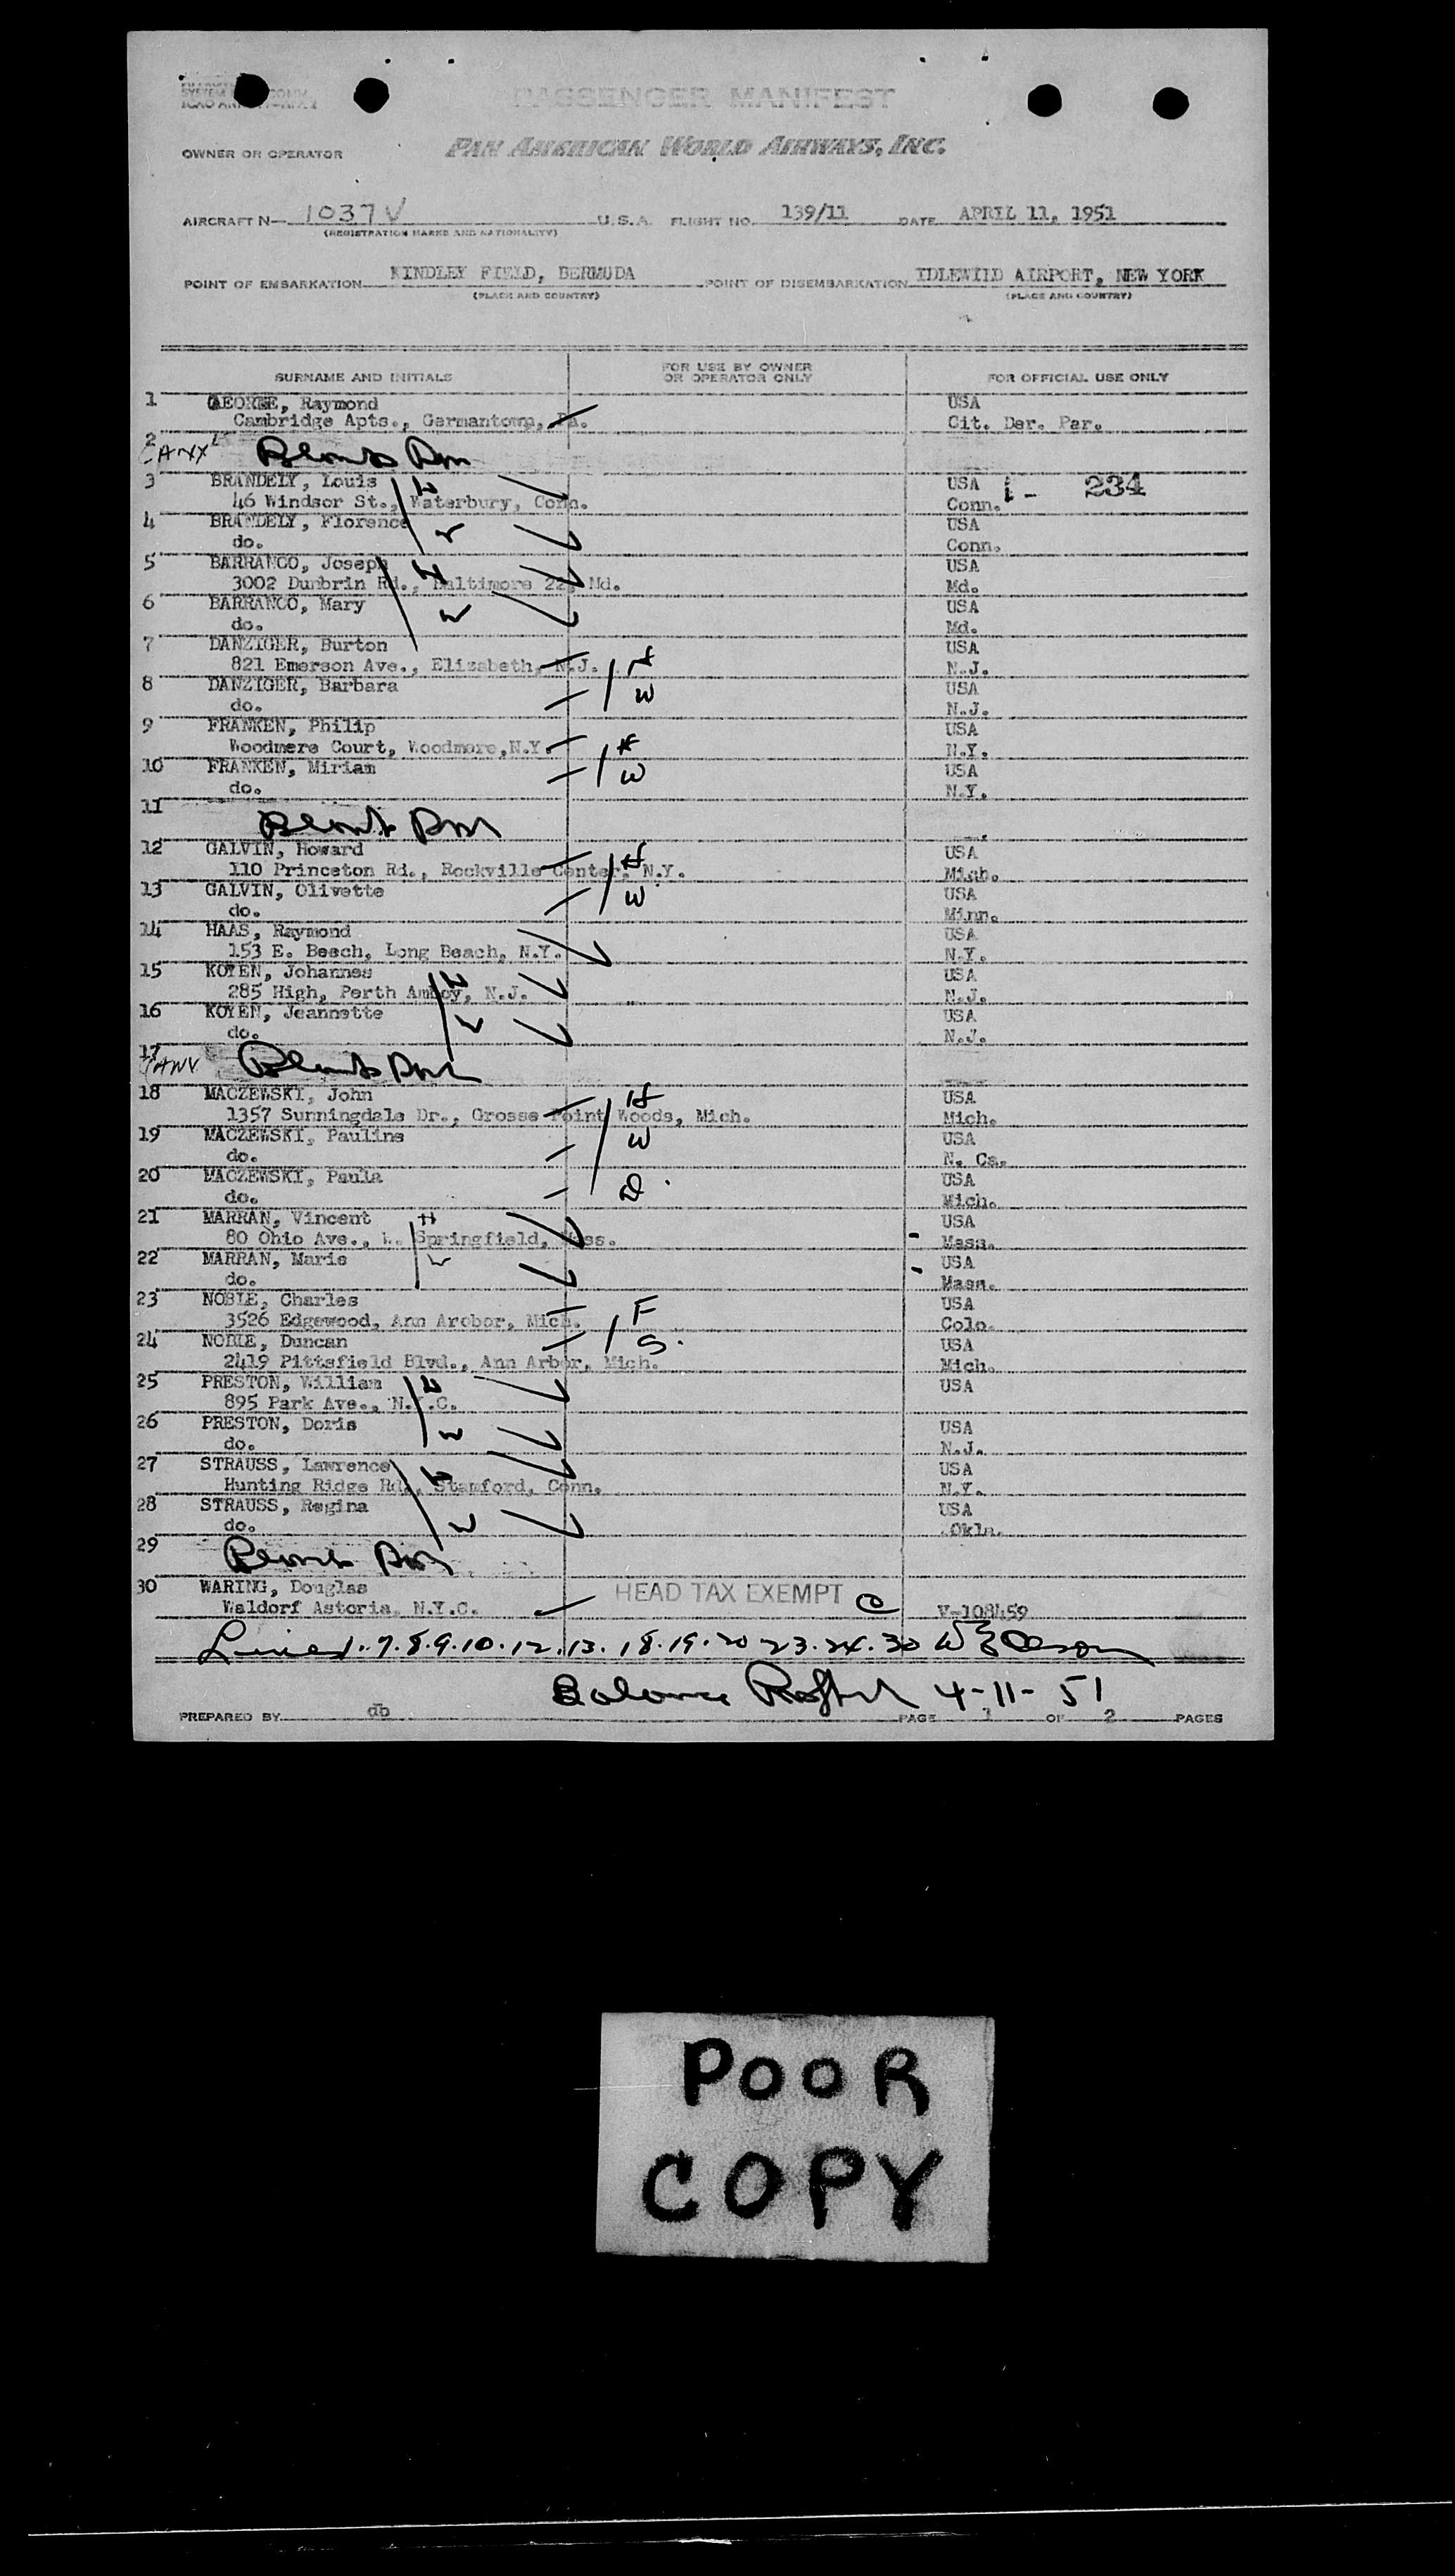 PASSENGER MANIFEST
OWNER OR OPERATOR PAN AMERICAN WORLD AIRWAYS, INC.
AIRCRAFT N— 1037V U.S.A. FLIGHT NO. 139/11 DATE APRIL 11, 1951
(REGISTRATION MARKS AND NATIONALITY)
POINT OF EMBARKATION KINDLEY FIELD, BERMUDA POINT OF DISEMBARKATION IDLEWILD AIRPORT, NEW YORK
(PLACE AND COUNTRY) (PLACE AND COUNTRY)
SURNAME AND INITIALS FOR USE BY OWNER OR OPERATOR ONLY FOR OFFICIAL USE ONLY
1 GEORGE, Raymond USA
Cambridge Apts., Germantown, Pa. Cit. Der. Par.
2
3 BRANDELY, Louis H USA 234
46 Windsor St., Waterbury, Conn. Conn.
4 BRANDELY, Florence W USA
do. Conn.
5 BARRANCO, Joseph H USA
3002 Dunbrin Rd., Baltimore 22, Md. Md.
6 BARRANCO, Mary W USA
do. Md.
7 DANZIGER, Burton H USA
821 Emerson Ave., Elizabeth, N.J. N.J.
8 DANZIGER, Barbara W USA
do. N.J.
9 FRANKEN, Philip H USA
Woodmere Court, Woodmere, N.Y. N.Y.
10 FRANKEN, Miriam W USA
do. N.Y.
11
12 GALVIN, Howard H USA
110 Princeton Rd., Rockville Center, N.Y. Mich.
13 GALVIN, Olivette W USA
do. Minn.
14 HAAS, Raymond USA
153 E. Beech, Long Beach, N.Y. N.Y.
15 KOYEN, Johannes H USA
285 High, Perth Amboy, N.J. N.J.
16 KOYEN, Jeannette W USA
do. N.J.
17
18 MACZEWSKI, John H USA
1357 Sunningdale Dr., Grosse Point Woods, Mich. Mich.
19 MACZEWSKI, Pauline W USA
do. N. Ca.
20 MACZEWSKI, Paula D USA
do. Mich.
21 MARRAN, Vincent H USA
80 Ohio Ave., W. Springfield, Mass. Mass.
22 MARRAN, Marie W USA
do. Mass.
23 NOBLE, Charles F USA
3526 Edgewood, Ann Arobor, Mich. Colo.
24 NOBLE, Duncan S. USA
2419 Pittsfield Blvd., Ann Arbor, Mich. Mich.
25 PRESTON, William H USA
895 Park Ave., N.Y.C.
26 PRESTON, Doris W USA
do. N.J.
27 STRAUSS, Lawrence H USA
Hunting Ridge Rd., Stamford, Conn. N.Y.
28 STRAUSS, Regina W USA
do. Okla.
29
30 WARING, Douglas HEAD TAX EXEMPT
Waldorf Astoria, N.Y.C. V-108459
Lines 1.7.8.9.10.12.13.18.19.20 23.24.30 W E Olson
Balance 4-11-51
PREPARED BY db PAGE 1 OF 2 PAGES
POOR
COPY